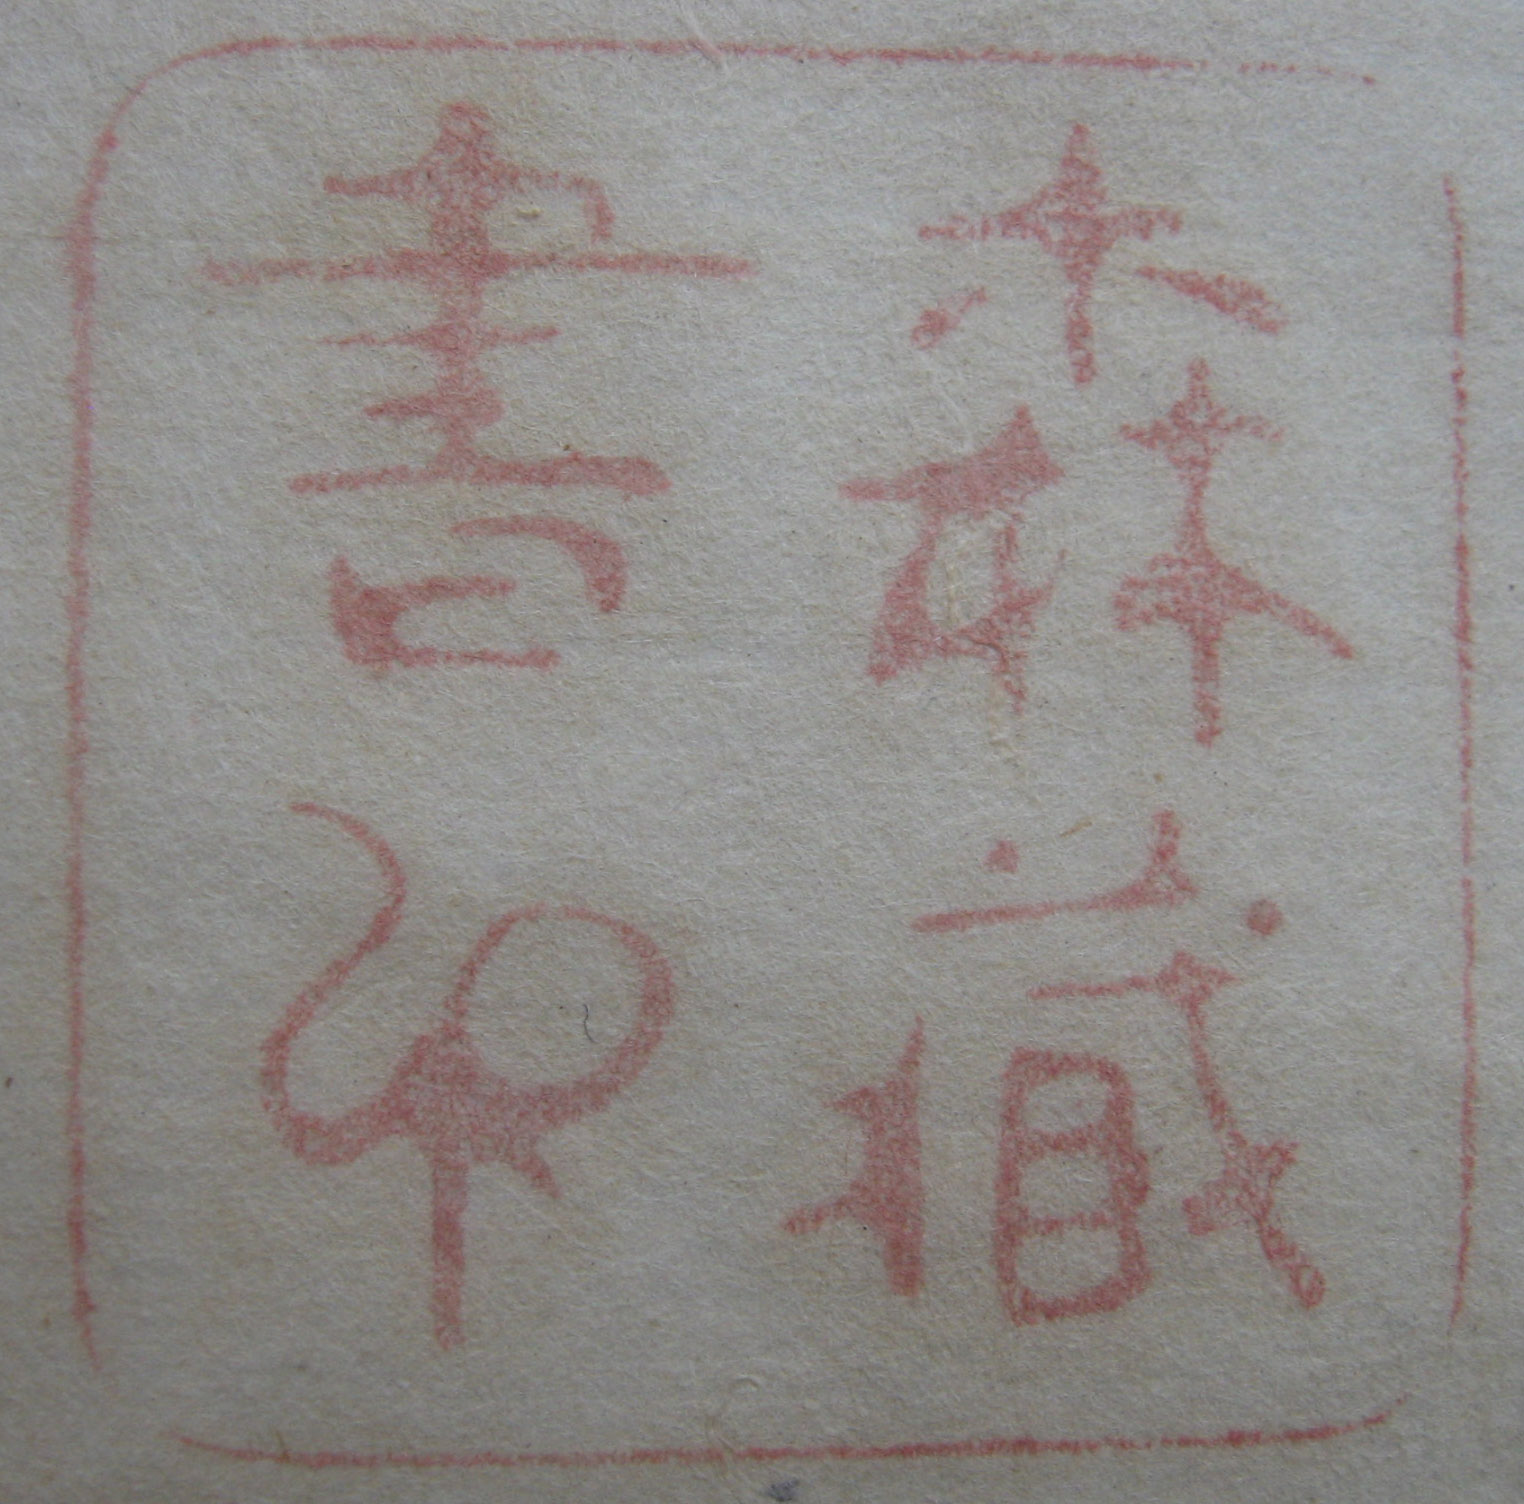 森藏
書印